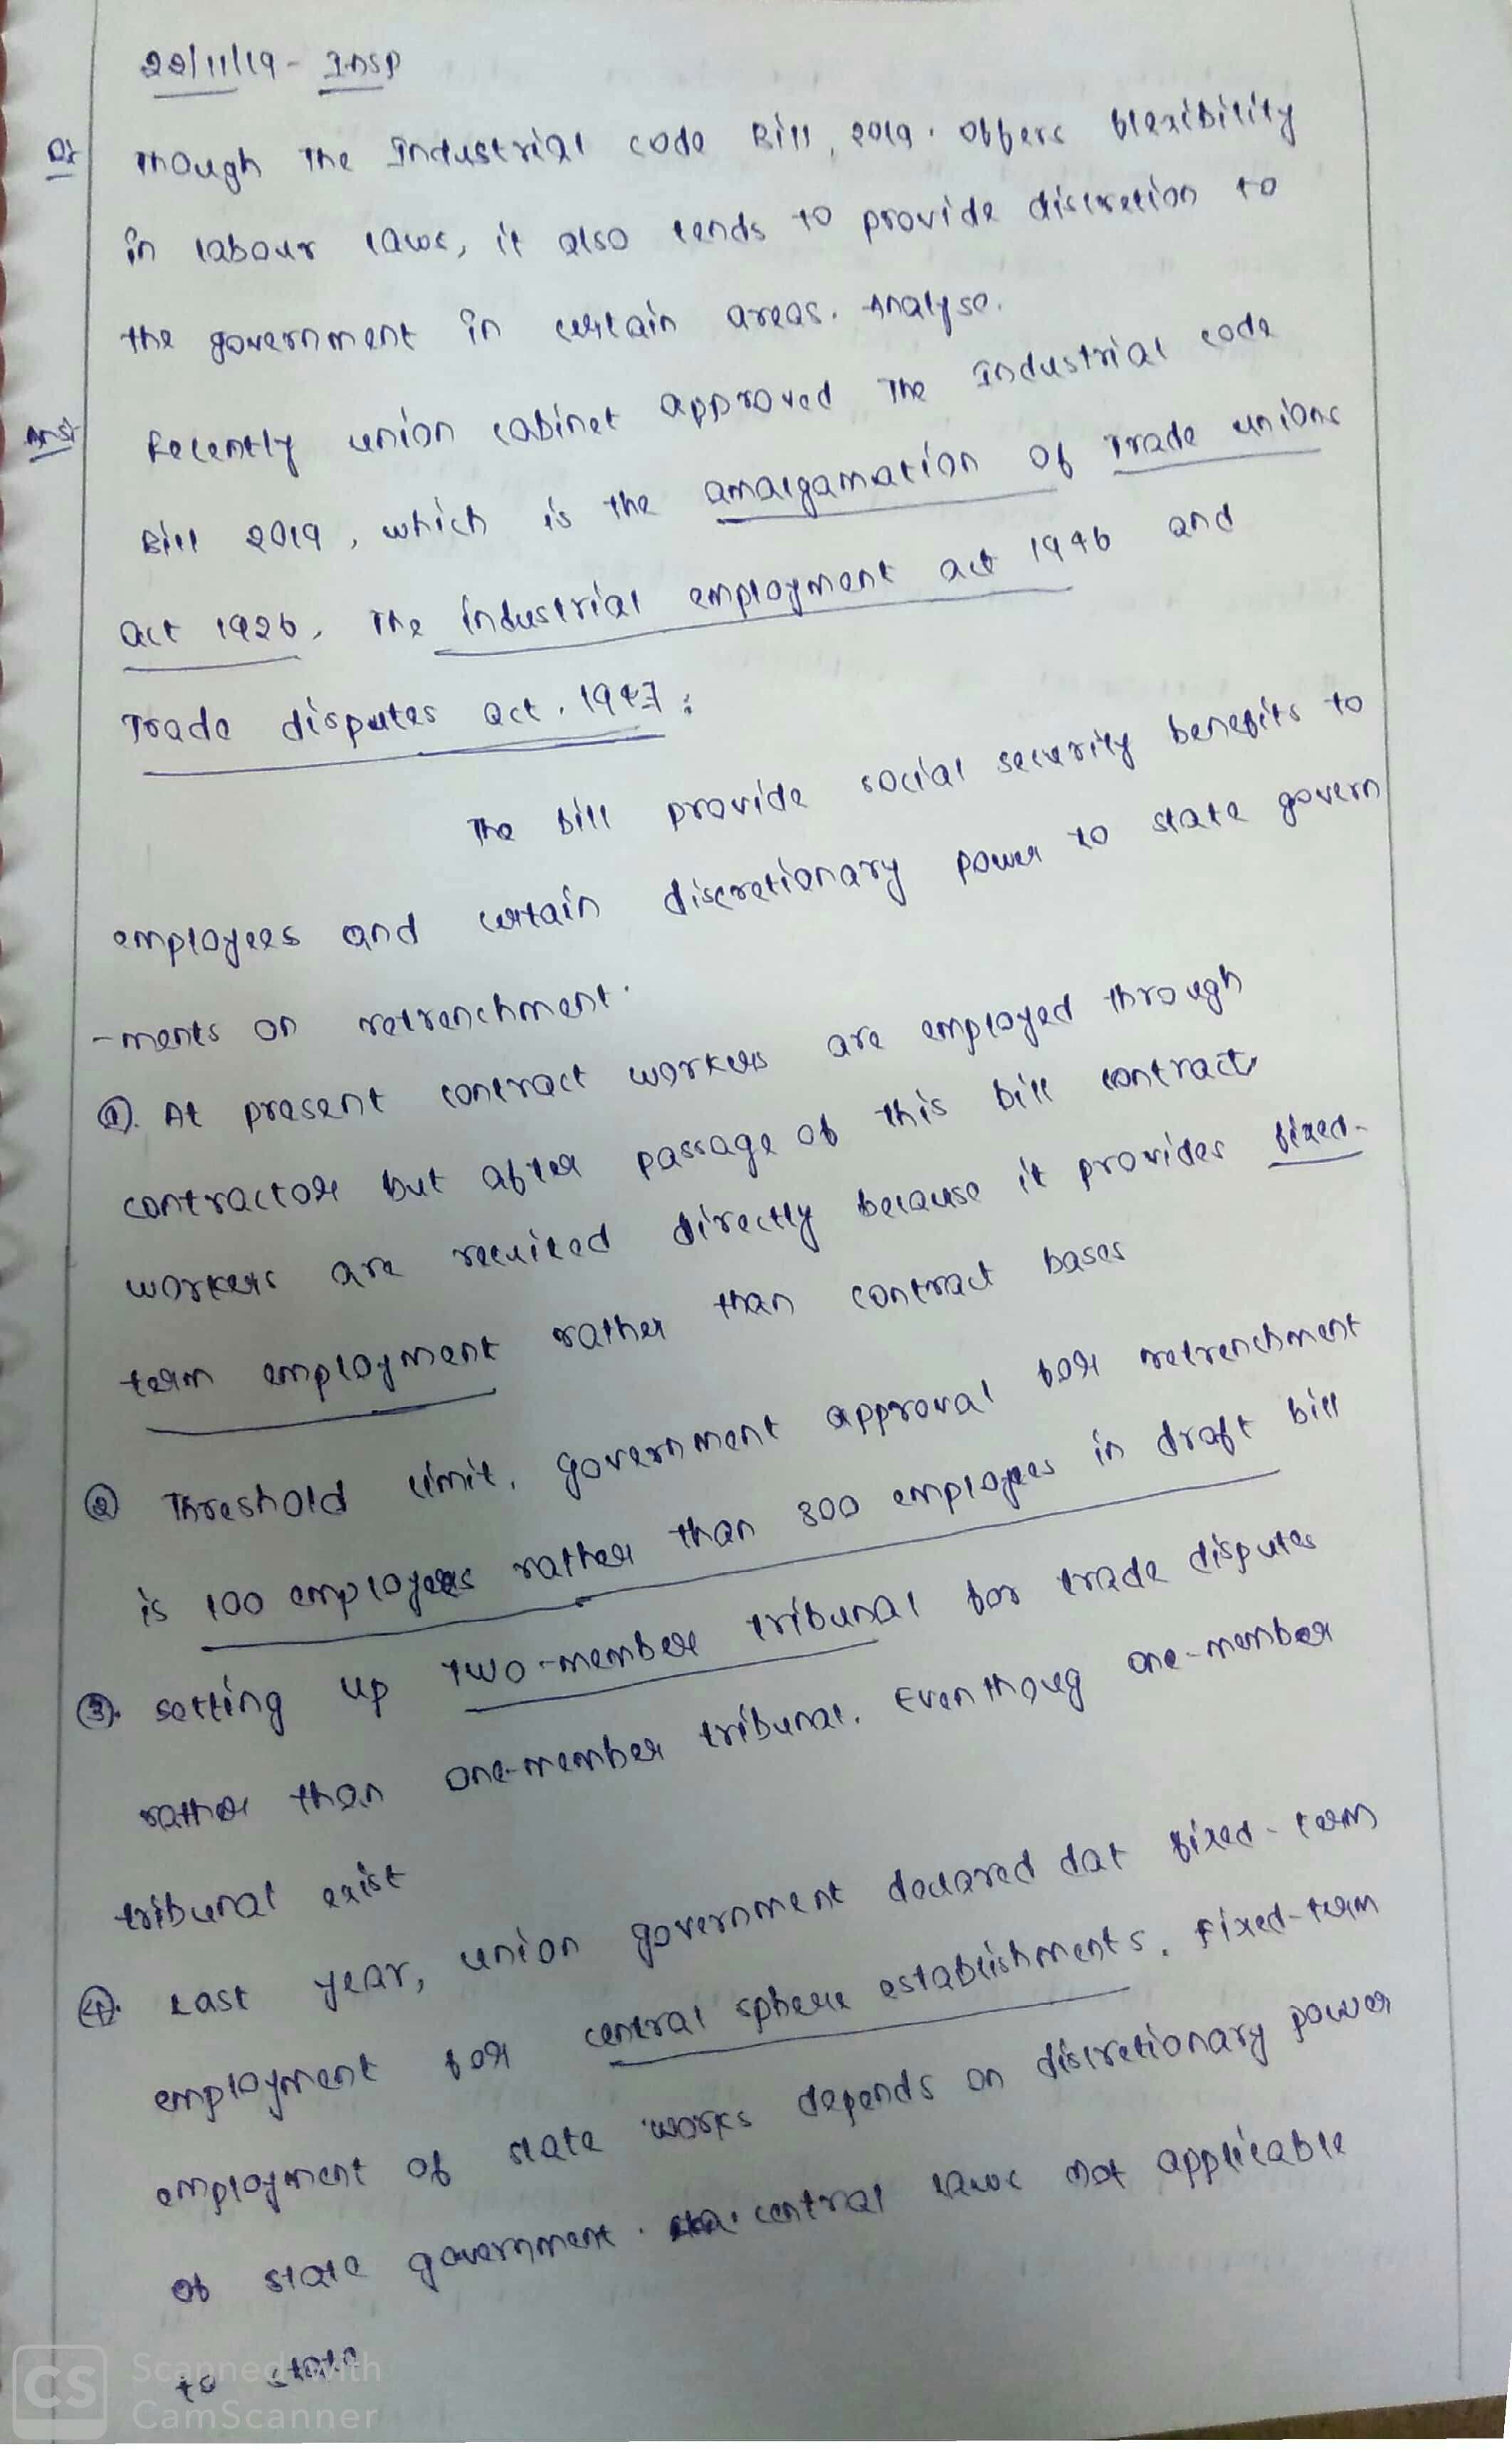 22/11/19 - Insp
Q: Though The Industrial code Bill, 2019. offers flexibility
in labour laws, it also tends to provide discretion to
the government in certain areas. Analyse.
Ans: Recently union cabinet approved The Industrial code
Bill 2019, which is the amalgamation of Trade unions
act 1926, The industrial employment act 1946 and
Trade disputes act, 1947:
The bill provide social security benefits to
employees and certain discretionary power to state govern
-ments on retrenchment.
①. At present contract workers are employed through
contractor but after passage of this bill contract
workers are recuited directly because it provides fixed-
term employment rather than contract bases
② Threshold limit, government approval for retrenchment
is 100 employees rather than 300 employees in draft bill
③. setting up two-member tribunal for trade disputes
rather than one-member tribunal. Even thoug one-member
tribunal exist
④. Last year, union government declared dat fixed-term
employment for central sphere establishments. Fixed-term
employment of state works depends on discretionary power
of state government. central laws not applicable
to state
CS Scanned with
CamScanner